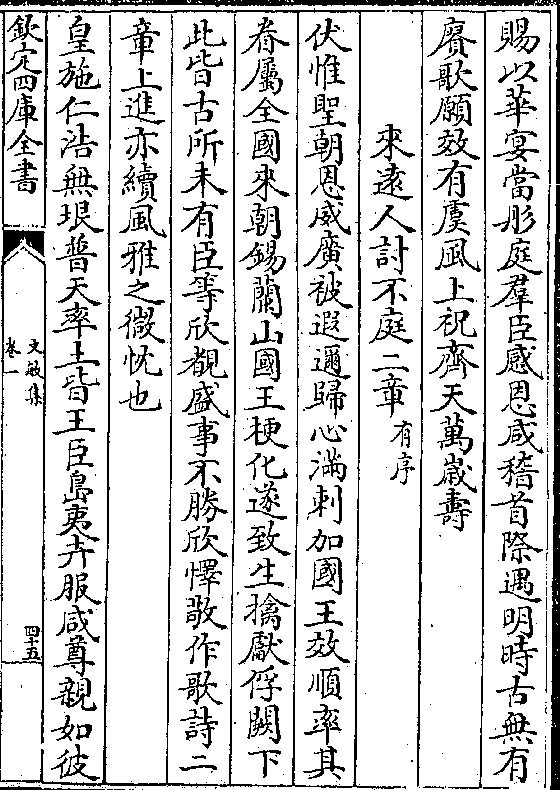 賜以華宴當彤庭羣臣感恩咸稽首際遇明時古無有
賡歌願效有虞風上祝齊天萬嵗壽
來遠人討不庭二章有序
伏惟聖朝恩威廣被遐邇歸心滿剌加國王效順率其
眷屬全國來朝錫蘭山國王梗化遂致生擒獻俘闕下
此皆古所未有臣等欣覩盛事不勝欣懌敬作歌詩二
章上進亦續風雅之微忱也
皇施仁浩無垠普天率土皆王臣島夷卉服咸尊親如彼
欽定四庫全書
文敏集
卷一
四十五